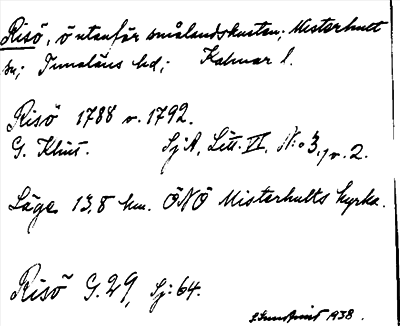 Risö, ö utanför smålandskusten; Misterhult
sn; Tunaläns hd; Kalmar l.
Risö 1788 v. 1792.
G. Klint. SjA, Litt. VI, N:o 3, v. 2.
Läge 13,8 km. ÖNÖ Misterhults kyrka.
Risö G. 29, Sj: 64.
1938.